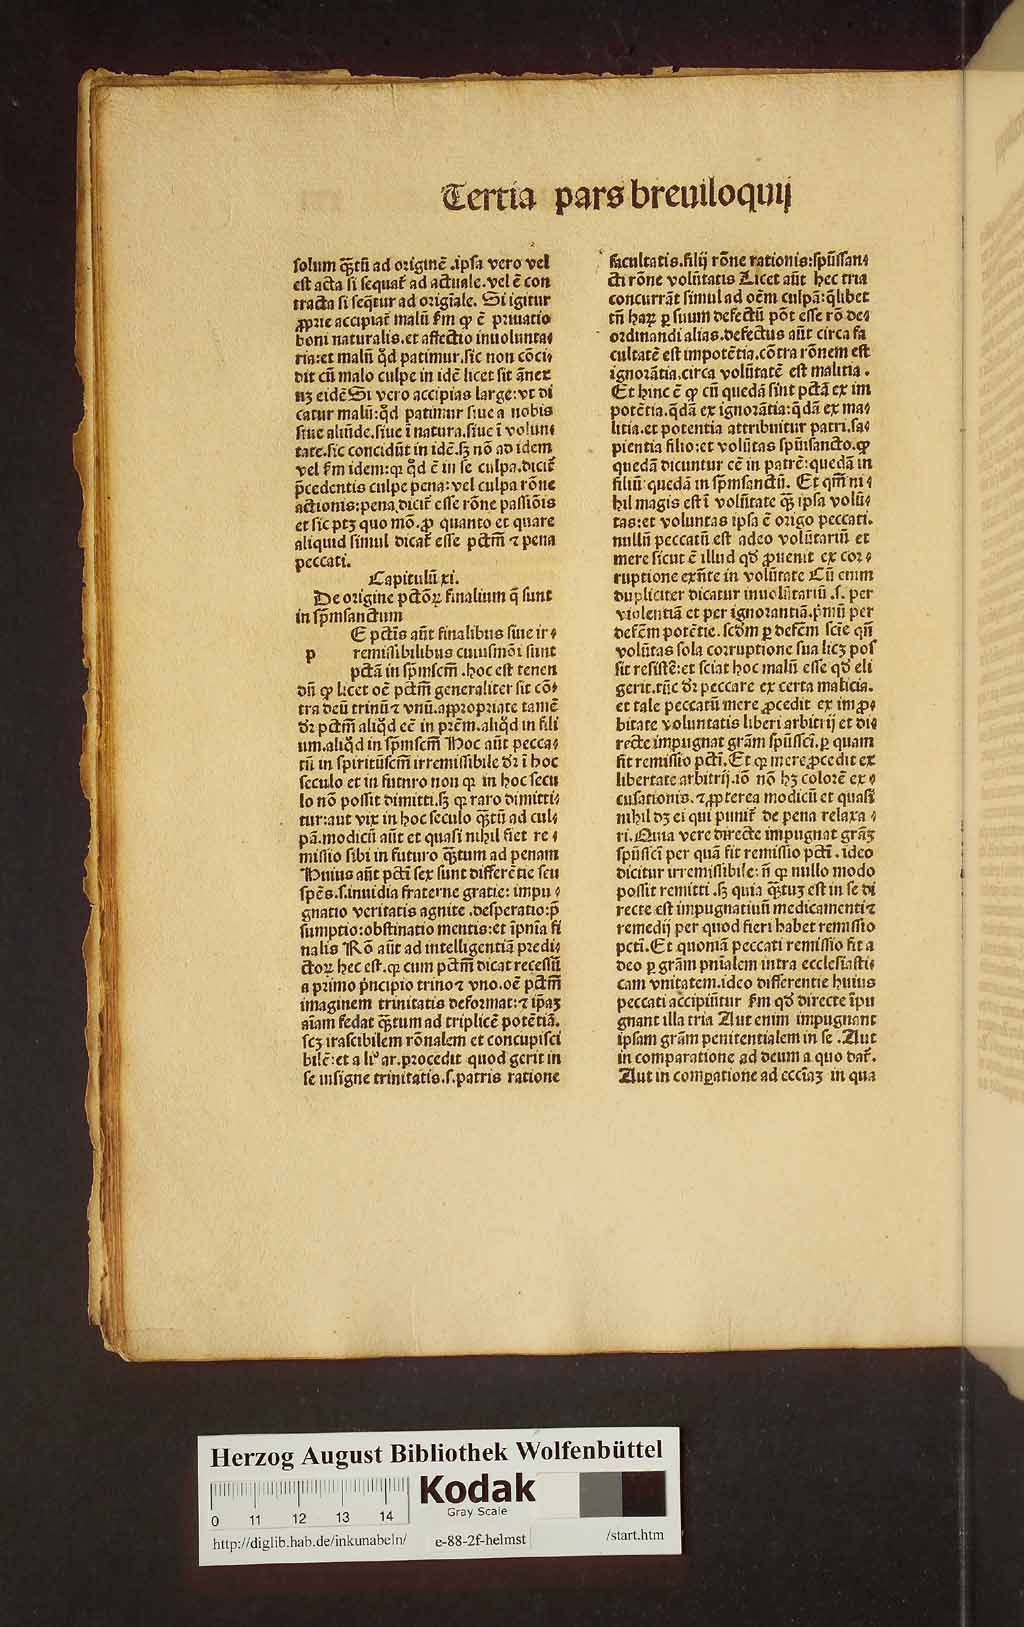 Tertia pars breuiloquij
solum qꝫtū ad originē .ipsa vero vel
est acta si sequat᷑ ad actuale.vel ē con
tracta si seq̄tur ad origīale. Si igitur
ꝓprie accipiat᷑ malū ẜm ꝙ ē priuatio
boni naturalis.et affectio inuolunta⸗
ria:et malū q̄d patimur.sic non cōci⸗
dit cū malo culpe in idē licet sit ānex
uꝫ eidē Si vero accipias large:vt di
catur malū:q̄d patimur siue a nobis
siue aliūde.siue ī natura.siue ī volun⸗
tate.sic concidūt in idē.sꝫ nō ad idem
vel ẜm idem:qꝛ q̄d ē in se culpa.dicit᷑
p̄cedentis culpe pena:vel culpa rōne
actionis:pena dicit᷑ esse rōne passiōis
et sic ptꝫ quo mō.ꝓ quanto et quare
aliquid simul dicat᷑ esse pctm̄ ⁊ pena
peccati.
Capitulū xi.
De origine pctōꝝ finalium q̄ sunt
in sp̄msanctum
E pctīs aūt finalibus siue ir⸗
p remissibilibus cuiusmōi sunt
pctā in sp̄mscm̄ .hoc est tenen
dū ꝙ licet oē pctm̄ generaliter sit cō⸗
tra deū trinū ⁊ vnū.appropriate tamē
dr̄ pctm̄ aliq̄d eē in prēm.aliq̄d in fili
um.aliq̄d in sp̄mscm̄ Hoc aūt pecca⸗
tū in spiritūscm̄ irremissibile dr̄ ī hoc
seculo et in futuro non qꝛ in hoc secu
lo nō possit dimitti.sꝫ qꝛ raro dimitti⸗
tur:aut vix in hoc seculo qꝫtū ad cul⸗
pā.modicū aūt et quasi nihil fiet re⸗
missio sibi in futuro qꝫtum ad penam
Huius aūt pctī sex sunt differētie seu
spēs.s.inuidia fraterne gratie: impu⸗
gnatio veritatis agnite .desperatio:p̄
sumptio:obstinatio mentis:et īpnīa fi
nalis Rō aūt ad intelligentiā predi⸗
ctoꝝ hec est.ꝙ cum pctm̄ dicat recessū
a primo p̄ncipio trino ⁊ vno.oē pctm̄
imaginem trinitatis deformat:⁊ ip̄aꝫ
aīam fedat qꝫtum ad triplicē potētiā.
scꝫ irascibilem rōnalem et concupisci
bilē:et a li° ar.procedit quod gerit in
se insigne trinitatis.s.patris ratione
facultatis.filij rōne rationis:spūssan⸗
cti rōne volūtatis Licet aūt hec tria
concurrāt simul ad oēm culpā:q̄libet
tn̄ haꝝ ꝑ suum defectū pōt esse rō de⸗
ordinandi alias.defectus aūt circa fa
cultatē est impotētia.cōtra rōnem est
ignorātia.circa volūtatē est malitia .
Et hinc ē ꝙ cū quedā sint pctā ex im
potētia.q̄dā ex ignorātia:q̄dā ex ma⸗
litia.et potentia attribuitur patri.sa⸗
pientia filio:et volūtas spūisancto.ꝙ
quedā dicuntur eē in patrē:quedā in
filiū quedā in sp̄msanctū. Et qm̄ ni⸗
hil magis est ī volūtate qꝫ ipsa volū⸗
tas:et voluntas ipsa ē origo peccati.
nullū peccatū est adeo volūtariū et
mere sicut ē illud qd̄ ꝓuenit ex cor⸗
ruptione exn̄te in volūtate Cū enim
dupliciter dicatur inuolūtariū .s. per
violentiā et per ignorantiā.p̄mū per
defēm potētie.scd̄m ꝑ defēm scīe qn̄
volūtas sola corruptione sua licꝫ pos
sit resistē:et sciat hoc malū esse qd̄ eli
gerit.tūc dr̄ peccare ex certa malicia.
et tale peccatū mere ꝓcedit ex impro⸗
bitate voluntatis liberi arbitrij et di⸗
recte impugnat grām spūsscī.ꝑ quam
fit remissio pctī.Et qꝛ mere ꝓcedit ex
libertate arbitrij.iō nō hꝫ colorē ex⸗
cusationis.⁊ ꝓpterea modicū et quasi
nihil dꝫ ei qui punit᷑ de pena relaxa⸗
ri.Quia vere directe impugnat grāꝫ
spūsscī per quā fit remissio pctī.ideo
dicitur irremissibile: n̄ ꝙ nullo modo
possit remitti .sꝫ quia qꝫtuꝫ est in se di
recte est impugnatiuū medicamenti ⁊
remedij per quod fieri habet remissio
pctī.Et quoniā peccati remissio fit a
deo ꝑ grām pnīalem intra ecclesiasti⸗
cam vnitatem.ideo differentie huius
peccati accipiūtur ẜm qd̄ directe īpu
gnant illa tria Aut enim impugnant
ipsam grām penitentialem in se .Aut
in comparatione ad deum a quo dat᷑.
Aut in comꝑatione ad eccīaꝫ in qua
Herzog August Bibliothek Wolfenbüttel
Kodak
Gray Scale
0 11 12 13 14
http://diglib.hab.de/inkunabeln/ e-88-2f-helmst /start.htm